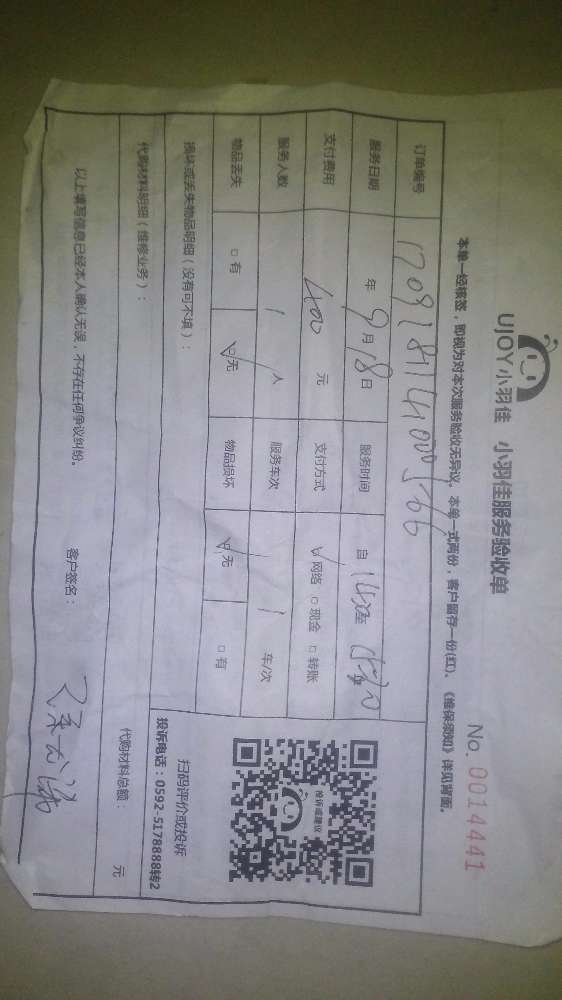 UJOY小羽佳 小羽佳服务验收单
No. 0014441
本单一经核签，即视为对本次服务验收无异议。本单一式两份，客户留存一份(红)、《维保须知》详见背面。
订单编号
服务日期 年 9月18日 服务时间 自
支付费用 400 元 支付方式 ☑网络 □现金 □转账
服务人数 1 人 服务车次 1 车/次
物品丢失 □有 ☑无 物品损坏 ☑无 □有
投诉或建议
扫码评价或投诉
投诉电话：0592-5178888转2
损坏或丢失物品明细（没有可不填）：
代购材料明细（维修业务）： 代购材料总额： 元
以上填写信息已经本人确认无误，不存在任何争议纠纷。 客户签名：